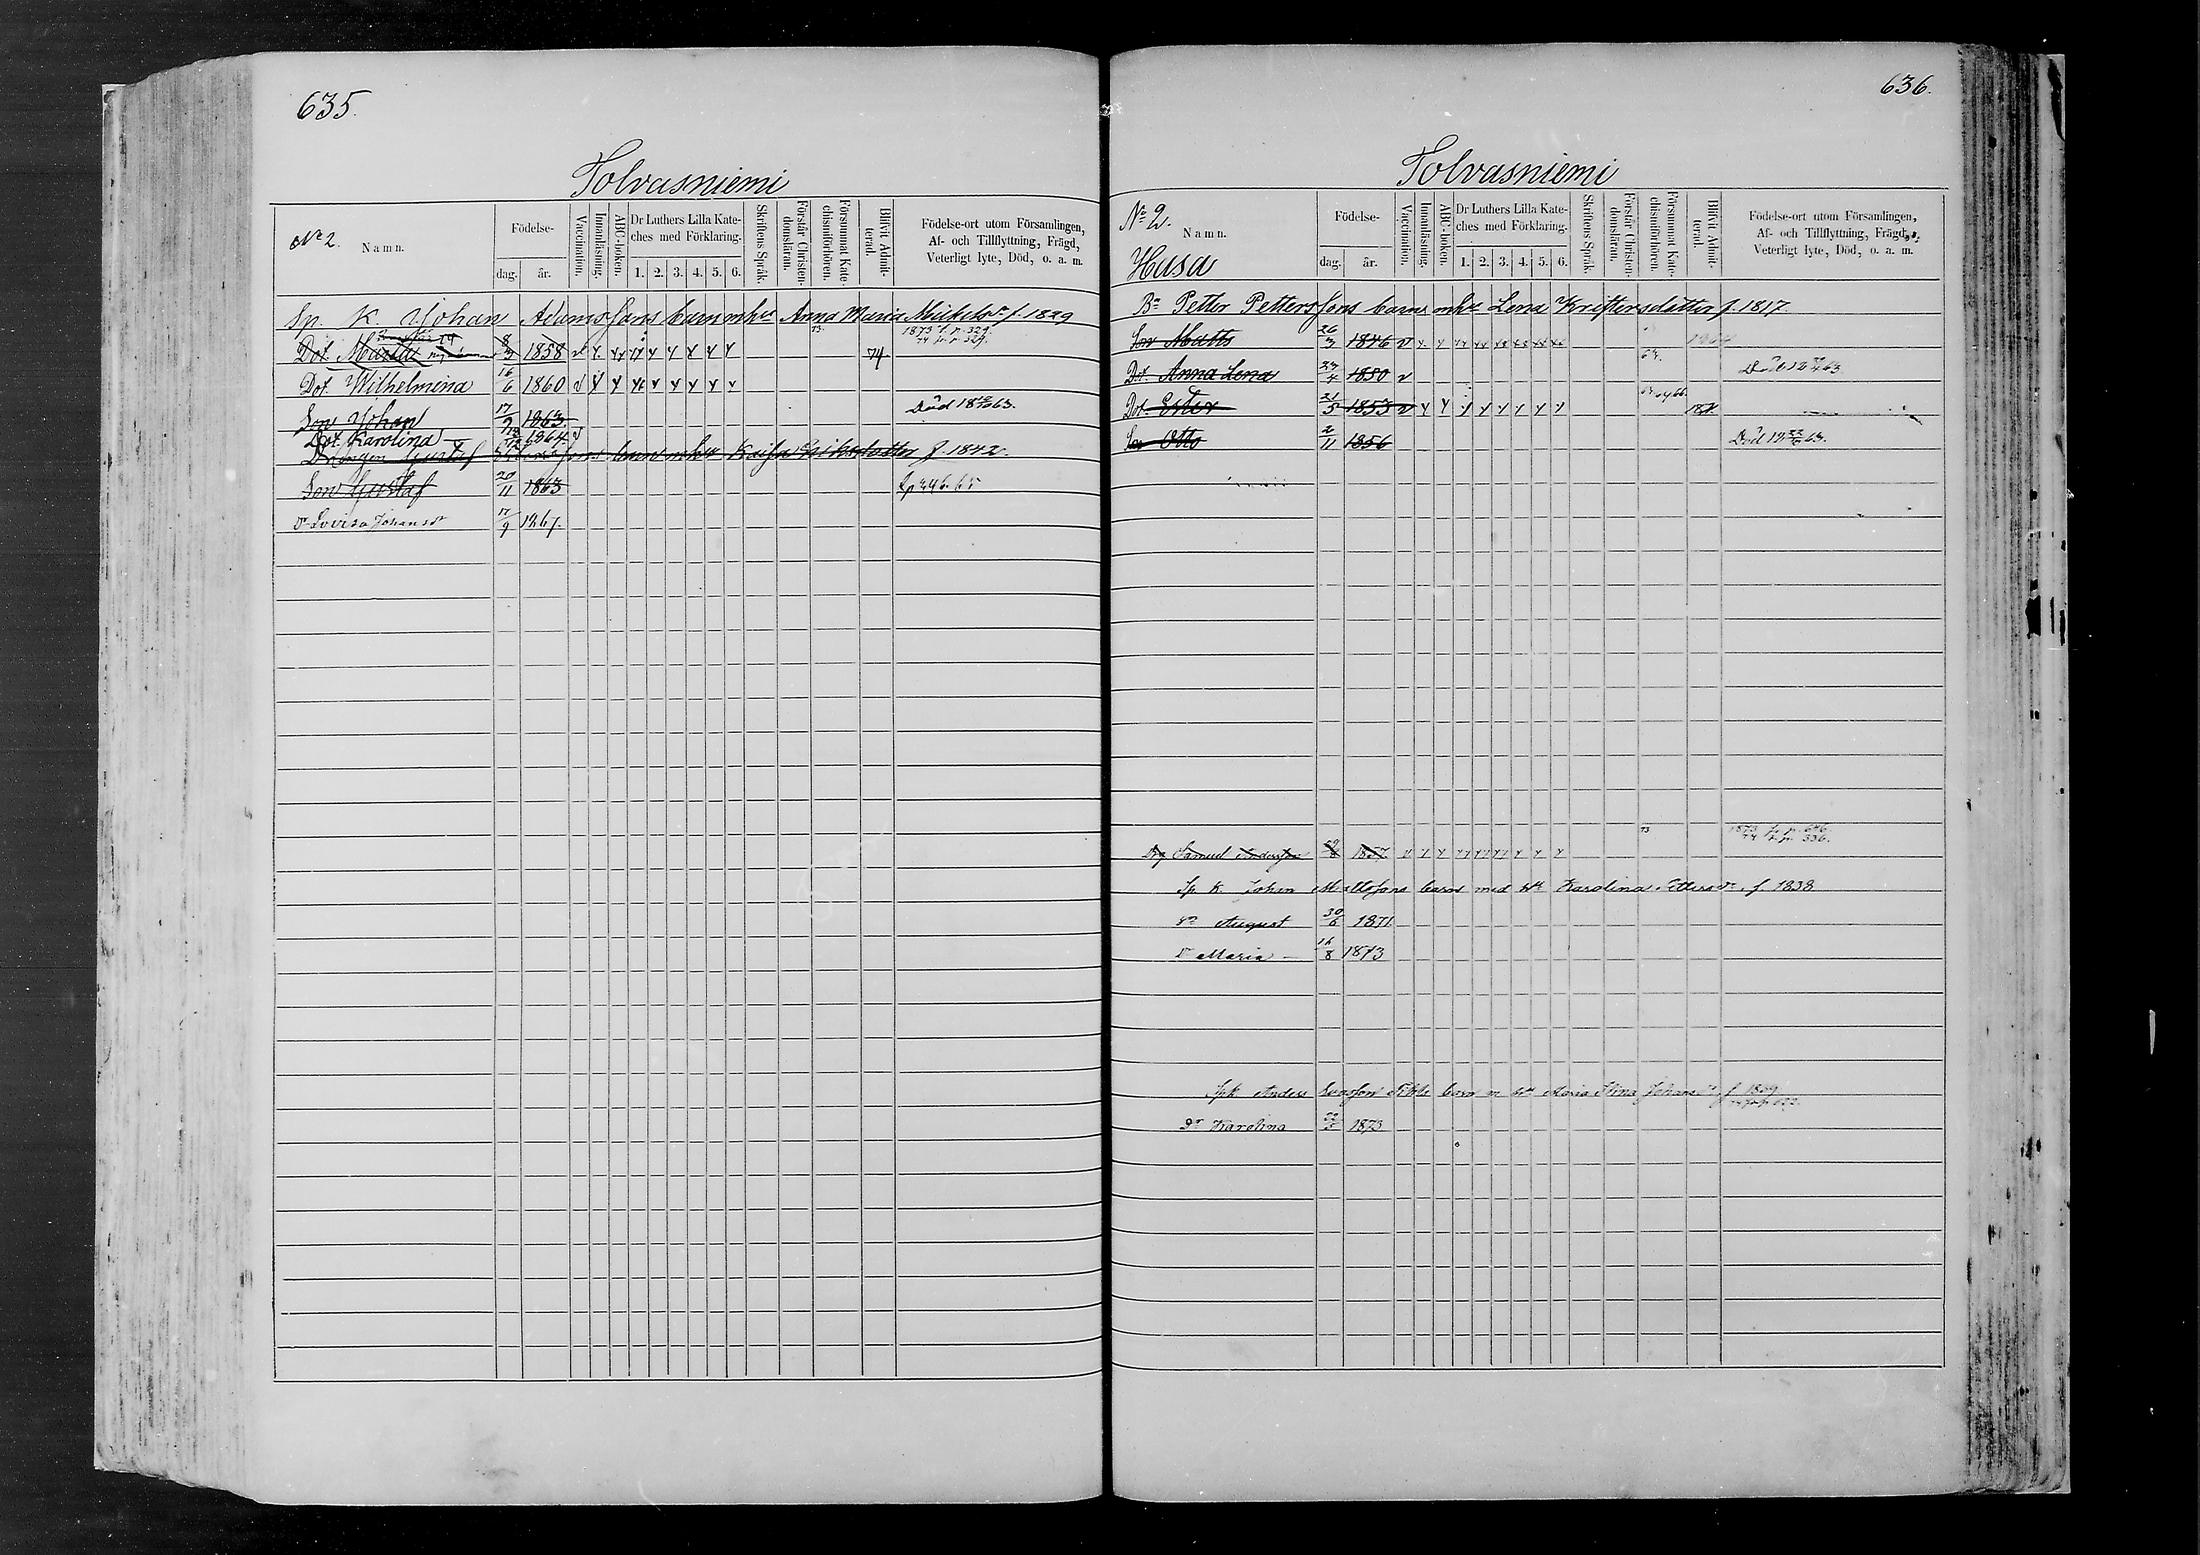 635.
Tolvasniemi
No 2.
Namn.
Födelse-
dag.
år.
Vaccination.
Innanläsning.
ABC-boken.
Dr Luthers Lilla Kate-
ches med Förklaring.
1. 2. 3. 4. 5. 6.
Skriftens Språk.
Förstår Christen-
domsläran.
Försummat Kate-
chismiförhören.
Blifvit Admit-
terad.
Födelse-ort utom Församlingen,
Af- och Tillflyttning, Frägd,
Veterligt lyte, Död, o. a. m.
Sp. K. Johan Adamssons barn m hu Anna Maria f. 1829
73.
1873 f. p. 329.
74 p. 329.
Dot. Maria 8/3 1858 74
Dot. Wilhelmina 16/6 1860
Son Johan 17/9 1863. Död 63.
Dot. Karolina 1864
Drängen Gustaf barn m hu Kaisa Eriksdotter f. 1842.
Son Gustaf 20/11 1863
Dr Lovisa Johansdr 17/9 1867.
636.
Tolvasniemi
No 2.
Namn.
Husa
Födelse-
dag.
år.
Vaccination.
Innanläsning.
ABC-boken.
Dr Luthers Lilla Kate-
ches med Förklaring.
1. 2. 3. 4. 5. 6.
Skriftens Språk.
Förstår Christen-
domsläran.
Försummat Kate-
chismiförhören.
Blifvit Admit-
terad.
Födelse-ort utom Församlingen,
Af- och Tillflyttning, Frägd,
Veterligt lyte, Död, o. a. m.
Petter Petterssons barn m hu Lena Kristersdotter f. 1817
Son Matts 26/3 1846
Dot. Anna Lena 27/4 1850 v
Dot. Ester 21/5 1853
Son Otto 2/11 1856
73
1873 fr. p. 646.
74 p. 336.
Drg Samuel Andersson 1857
Sp. K. Johan Mattssons barn med hu Karolina Pettersdr f. 1838
Sn August 30/6 1871
Dr Maria 16/8 1873
Spk. Anders barn m hu Maria Stina Johansdr f.
Dr Karolina 1873